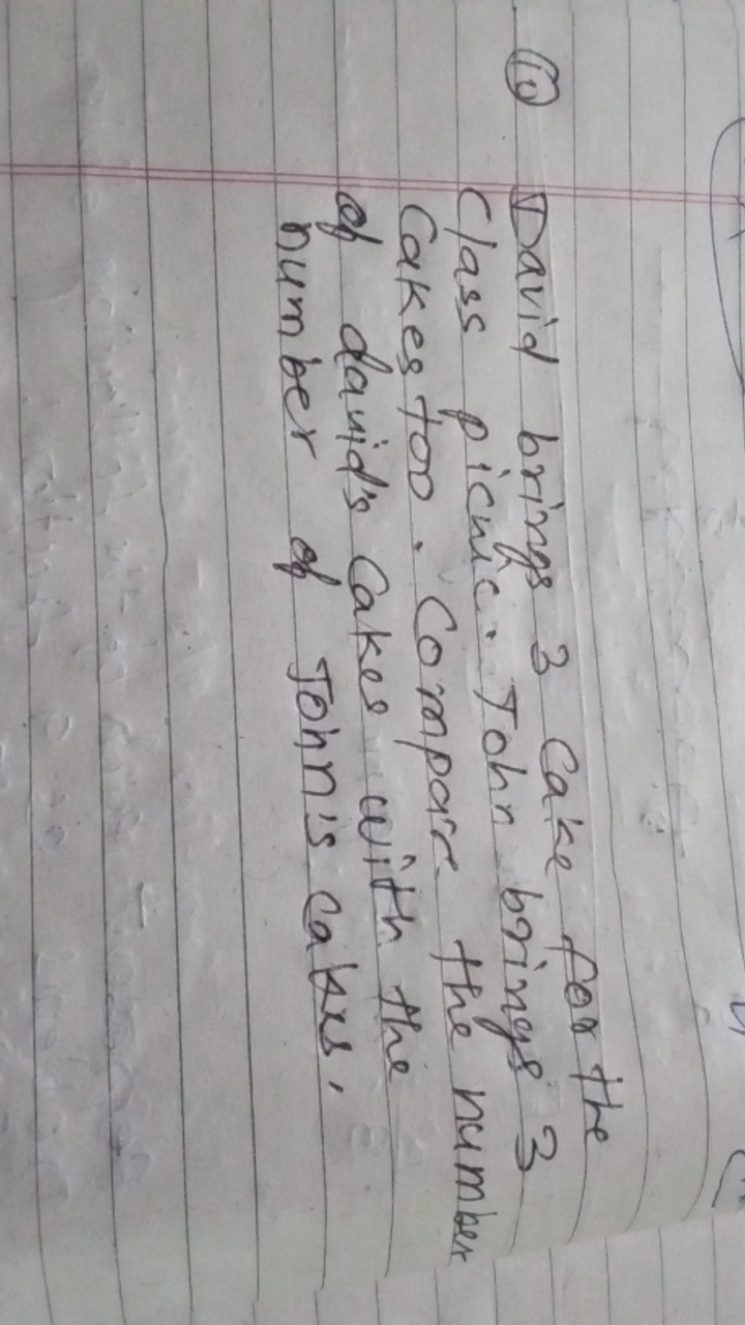 10 David brings 3 Cake for the
Class picnic. John brings 3
Cakes too. Compare the number
of david's Cakes with the
number of John's cakes.